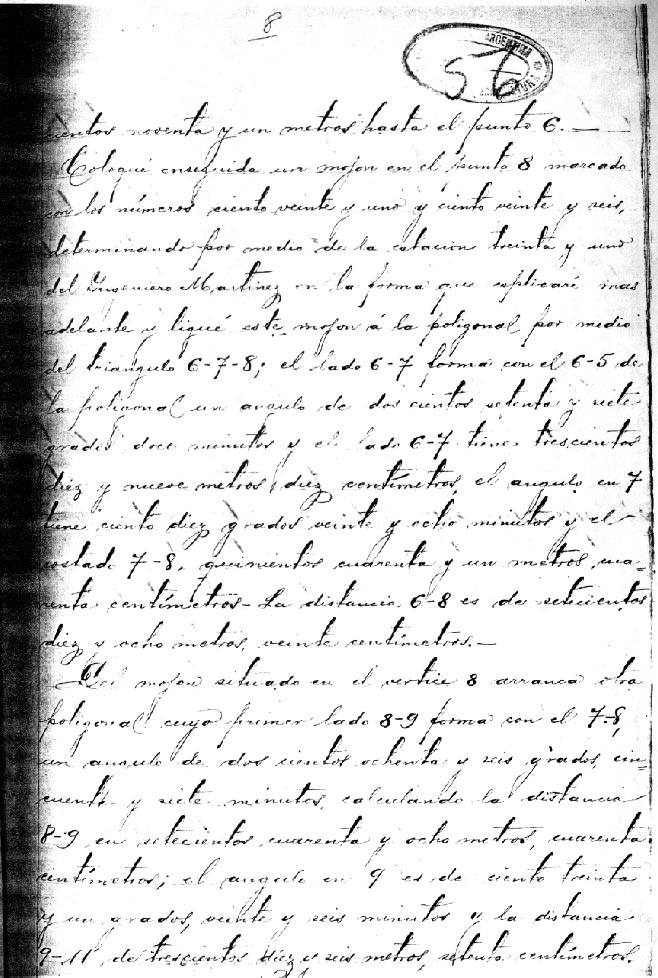 8
ARGENTINA
56
cientos noventa y un metros hasta el punto 6.—
Coloqué enseguida un mojon en el punto 8 marcado
con los números ciento veinte y uno y ciento veinte y seis,
determinando por medio de la estacion treinta y uno
del Ingeniero Martinez en la forma que esplicaré mas
adelante y ligué este mojon á la poligonal por medio
del triangulo 6-7-8; el lado 6-7 forma con el 6-5 de
la poligonal un angulo de dos cientos setenta y siete
grados doce minutos y el lado 6-7 tiene trescientos
diez y nueve metros, diez centímetros, el angulo en 7
tiene ciento diez grados veinte y ocho minutos y el
costado 7-8, quinientos cuarenta y un metros, cua-
renta centímetros- La distancia 6-8 es de setecientos
diez y ocho metros, veinte centímetros.—
Del mojon situado en el vertice 8 arranca otra
poligonal cuyo primer lado 8-9 forma con el 7-8,
un angulo de dos cientos ochenta y seis grados, cin-
cuenta y siete minutos, calculando la distancia
8-9 en setecientos cuarenta y ocho metros, cuarenta
centímetros; el angulo en 9 es de ciento treinta
y un grados, veinte y seis minutos y la distancia
9-11, de trescientos diez y seis metros, setenta centímetros.